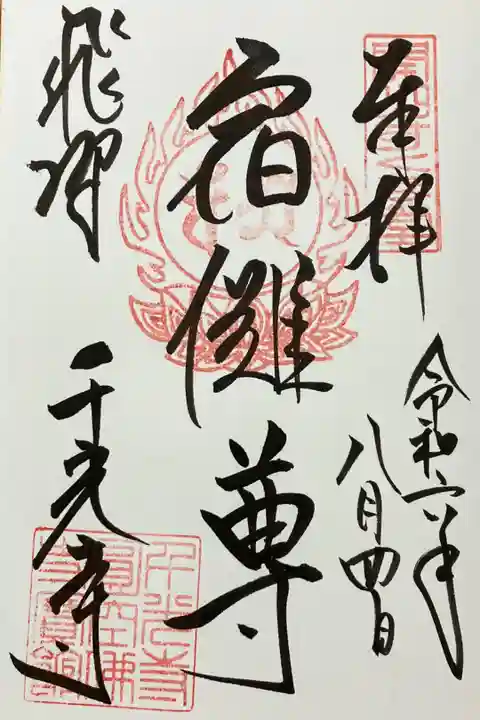 奉拝
令和六年
八月四日
宿儺尊
飛騨
千光寺